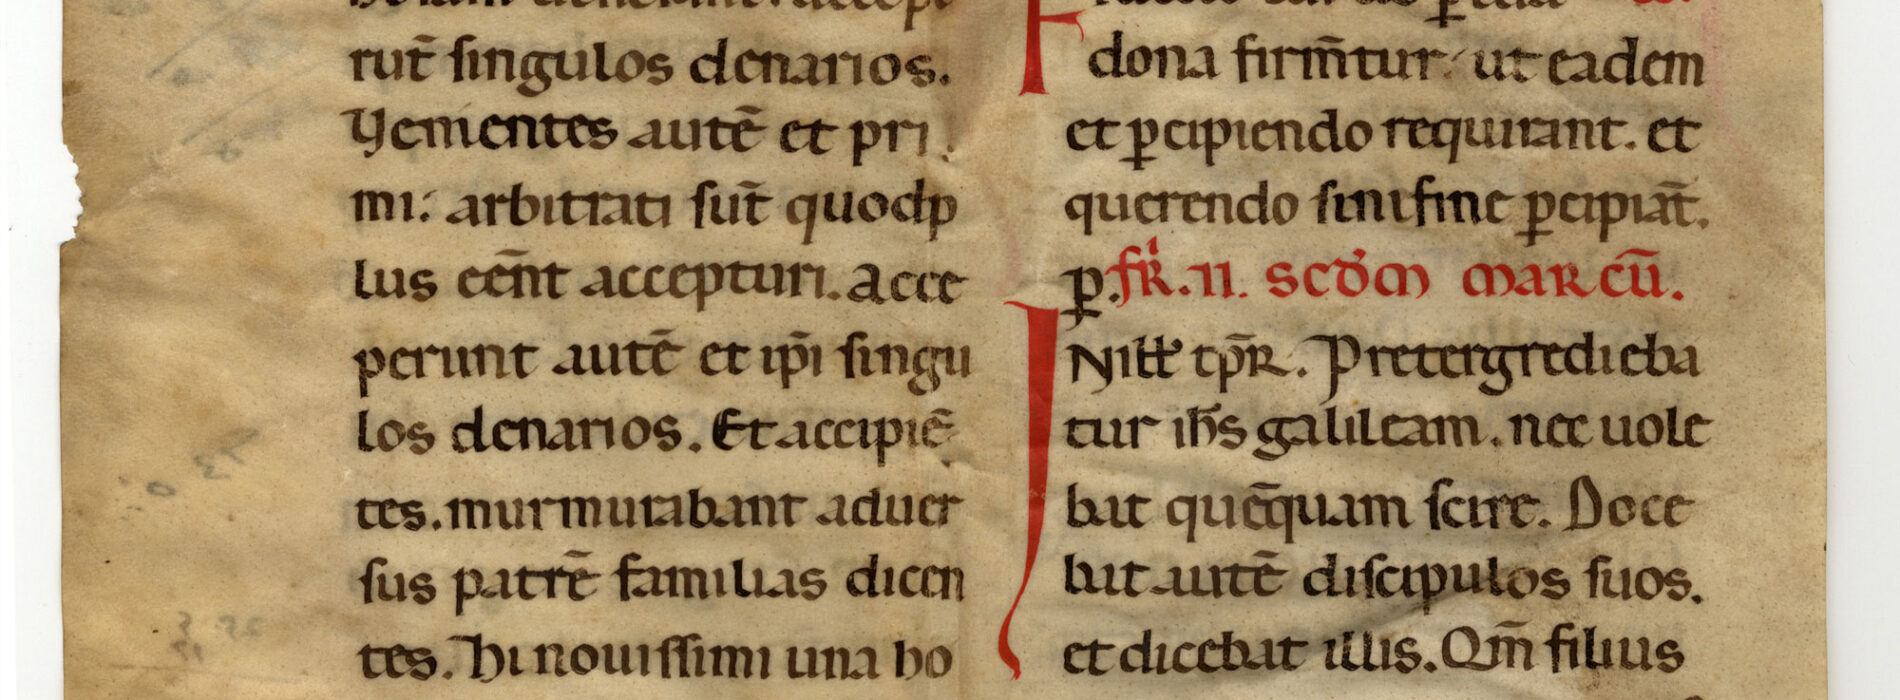 rut̄ singulos denarios.
Venientes autē et pri
mi: arbitrati sūt quod p
lus eēnt accepturi. Acce
perunt autē et ip̄i singu
los denarios. Et accipiē
tes. murmurabant aduer
sus patrē familias dicen
tes. Hi nouissimi una ho
dona firm̄tur. ut eadem
et ꝑcipiendo requirant. et
querendo sini fine ꝑcipiāt.
ꝑ. fr̄. ii. scđm marcū.
INill̵ tp̄r. Pretergredieba
tur ih̄s galileam. nec uole
bat quēquam scire. Doce
bat autē discipulos suos.
et dicebat illis. Qm̄ filius